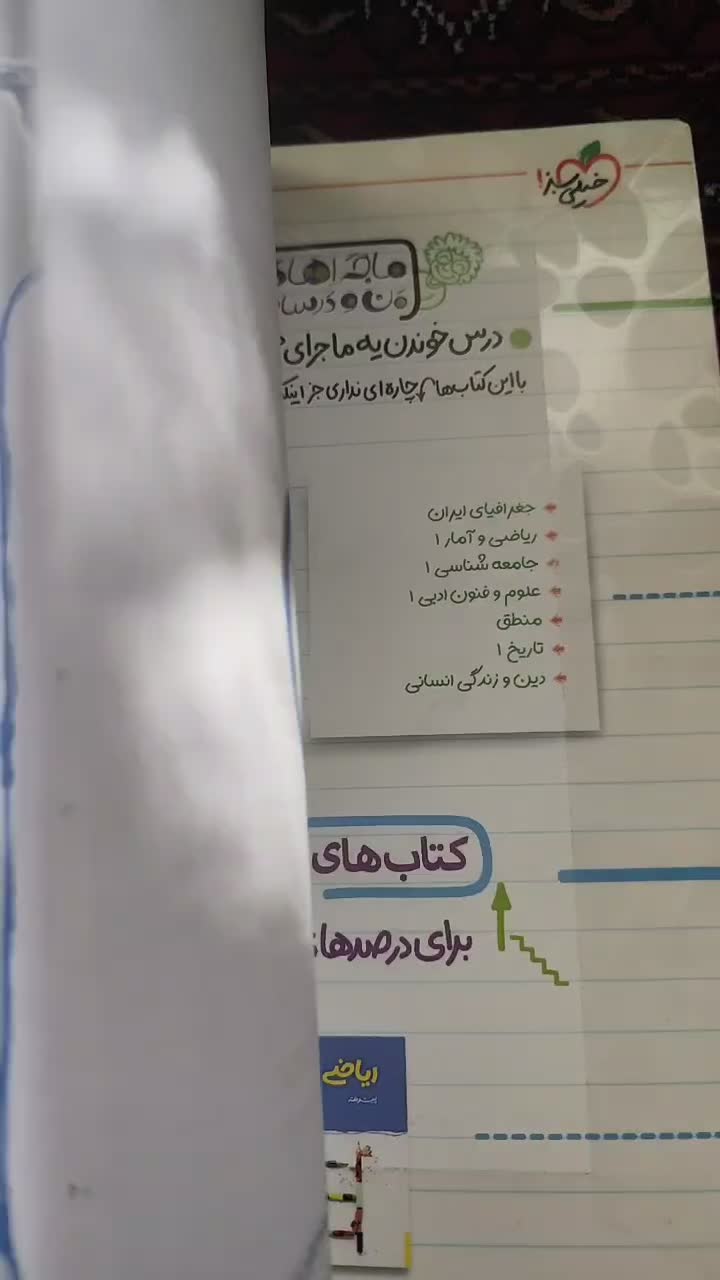 خیلی سبز!
ماجراهای
من و درسام
درس خوندن یه ماجرای
با این کتاب‌ها، چاره‌ای نداری جز اینکه
جغرافیای ایران
ریاضی و آمار ۱
جامعه شناسی ۱
علوم و فنون ادبی ۱
منطق
تاریخ ۱
دین و زندگی انسانی
کتاب‌های
برای درصدهای
ریاضی